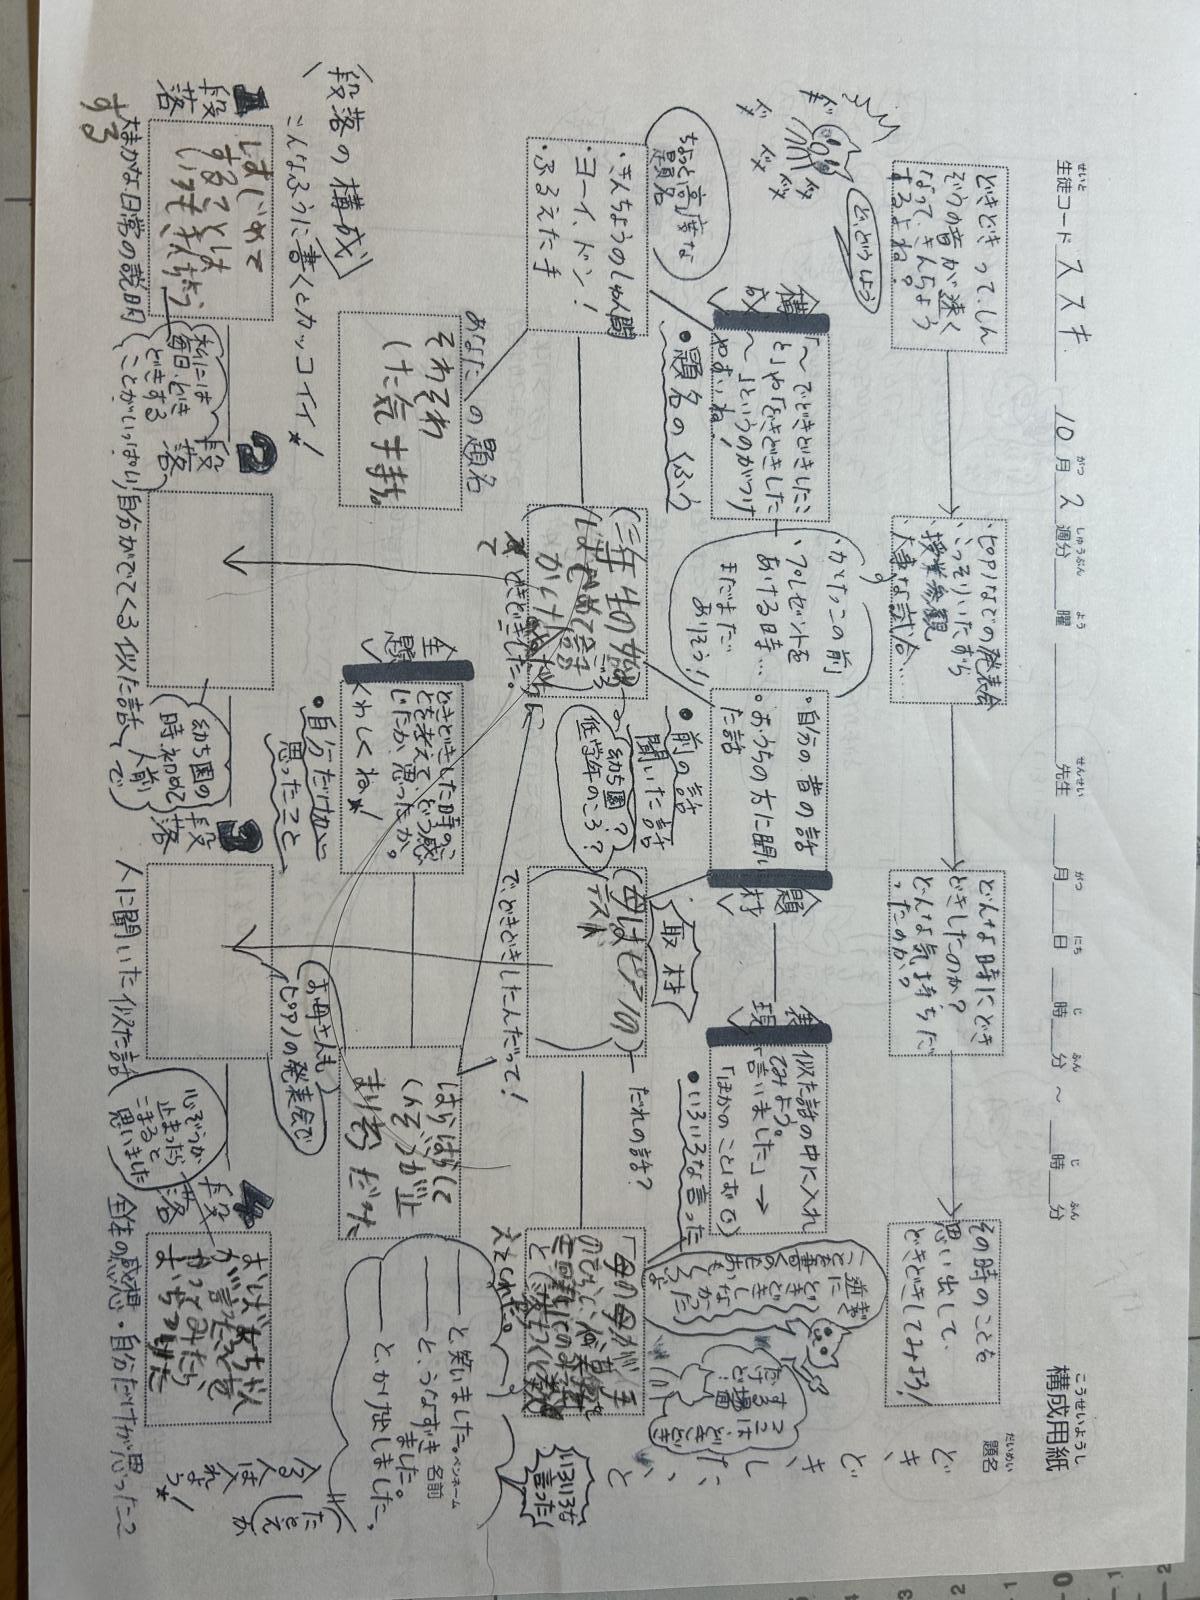 生徒コード スズキ 10月 2週分 曜 先生 月 日 時 分 ～ 時 分 構成用紙
せいと がつ しゅうぶん よう せんせい がつ にち じ ふん じ ふん こうせいようし
題名
だいめい
どキどキしたこと
どきどきって、しん
ぞうの音が速く
なって、きんちょう
するよね？
ど、どうしよう
・ピアノなどの発表会
・こっそりいたずら
・授業参観
・大事な試合…
どんな時にどき
どきしたのか？
どんな気持ちだ
ったのか？
その時のことを
思い出して、
どきどきしてみよう！
構成
「～でどきどきしたこ
と」や「どきどきした
～」というのがつけ
やすいね！
●題名のくふう
・かけっこの前
・プレゼントを
あげる時…
まだまだ
ありそう！
・自分の昔の話
・おうちの方に聞い
た話
●前の話
聞いた話
題材
取材
表現
似た話の中に入れ
てみよう。
「言いました」→
「ほかのことばで」
●いろいろな言った
ちょっと高度な
題名
・きんちょうのしゅん間
・ヨーイ、ドン！
・ふるえた手
三年生の始ごろ
はじめて会話
どきどきしました。
幼ち園？
低学年のころ？
母はピアノの
テスト
で、どきどきしたんだって！
だれの話？
いろいろな
言った
段落の構成
こんなふうに書くとカッコイイ！
あなたの題名
それぞれ
した気持ち。
主題
どきどきした時のこ
とを考えて、どう感
じたか、思ったか。
くわしくね
●自分だけが
思ったこと
はらはらして
しんぞうが止
まりそうだった
――と、笑いました。
――と、うなずきました。
――と、かけ出しました。
ペンネーム
名前
1段落
はじめて
することは
いつもきんちょう
する
大まかな日常の説明
私には
毎日、どき
どきする
ことがいっぱい
2段落
自分がでてくる似た話
幼ち園の
時、初めて
人前で
3段落
人に聞いた似た話
お母さんも
ピアノの発表会で
心ぞうが
止まったら
こまると
思いました
4段落
おばあちゃん
が言ったことを
やってみたら
おちついた
全体の感想・自分だけが思ったこと
たとえが
入れよう！